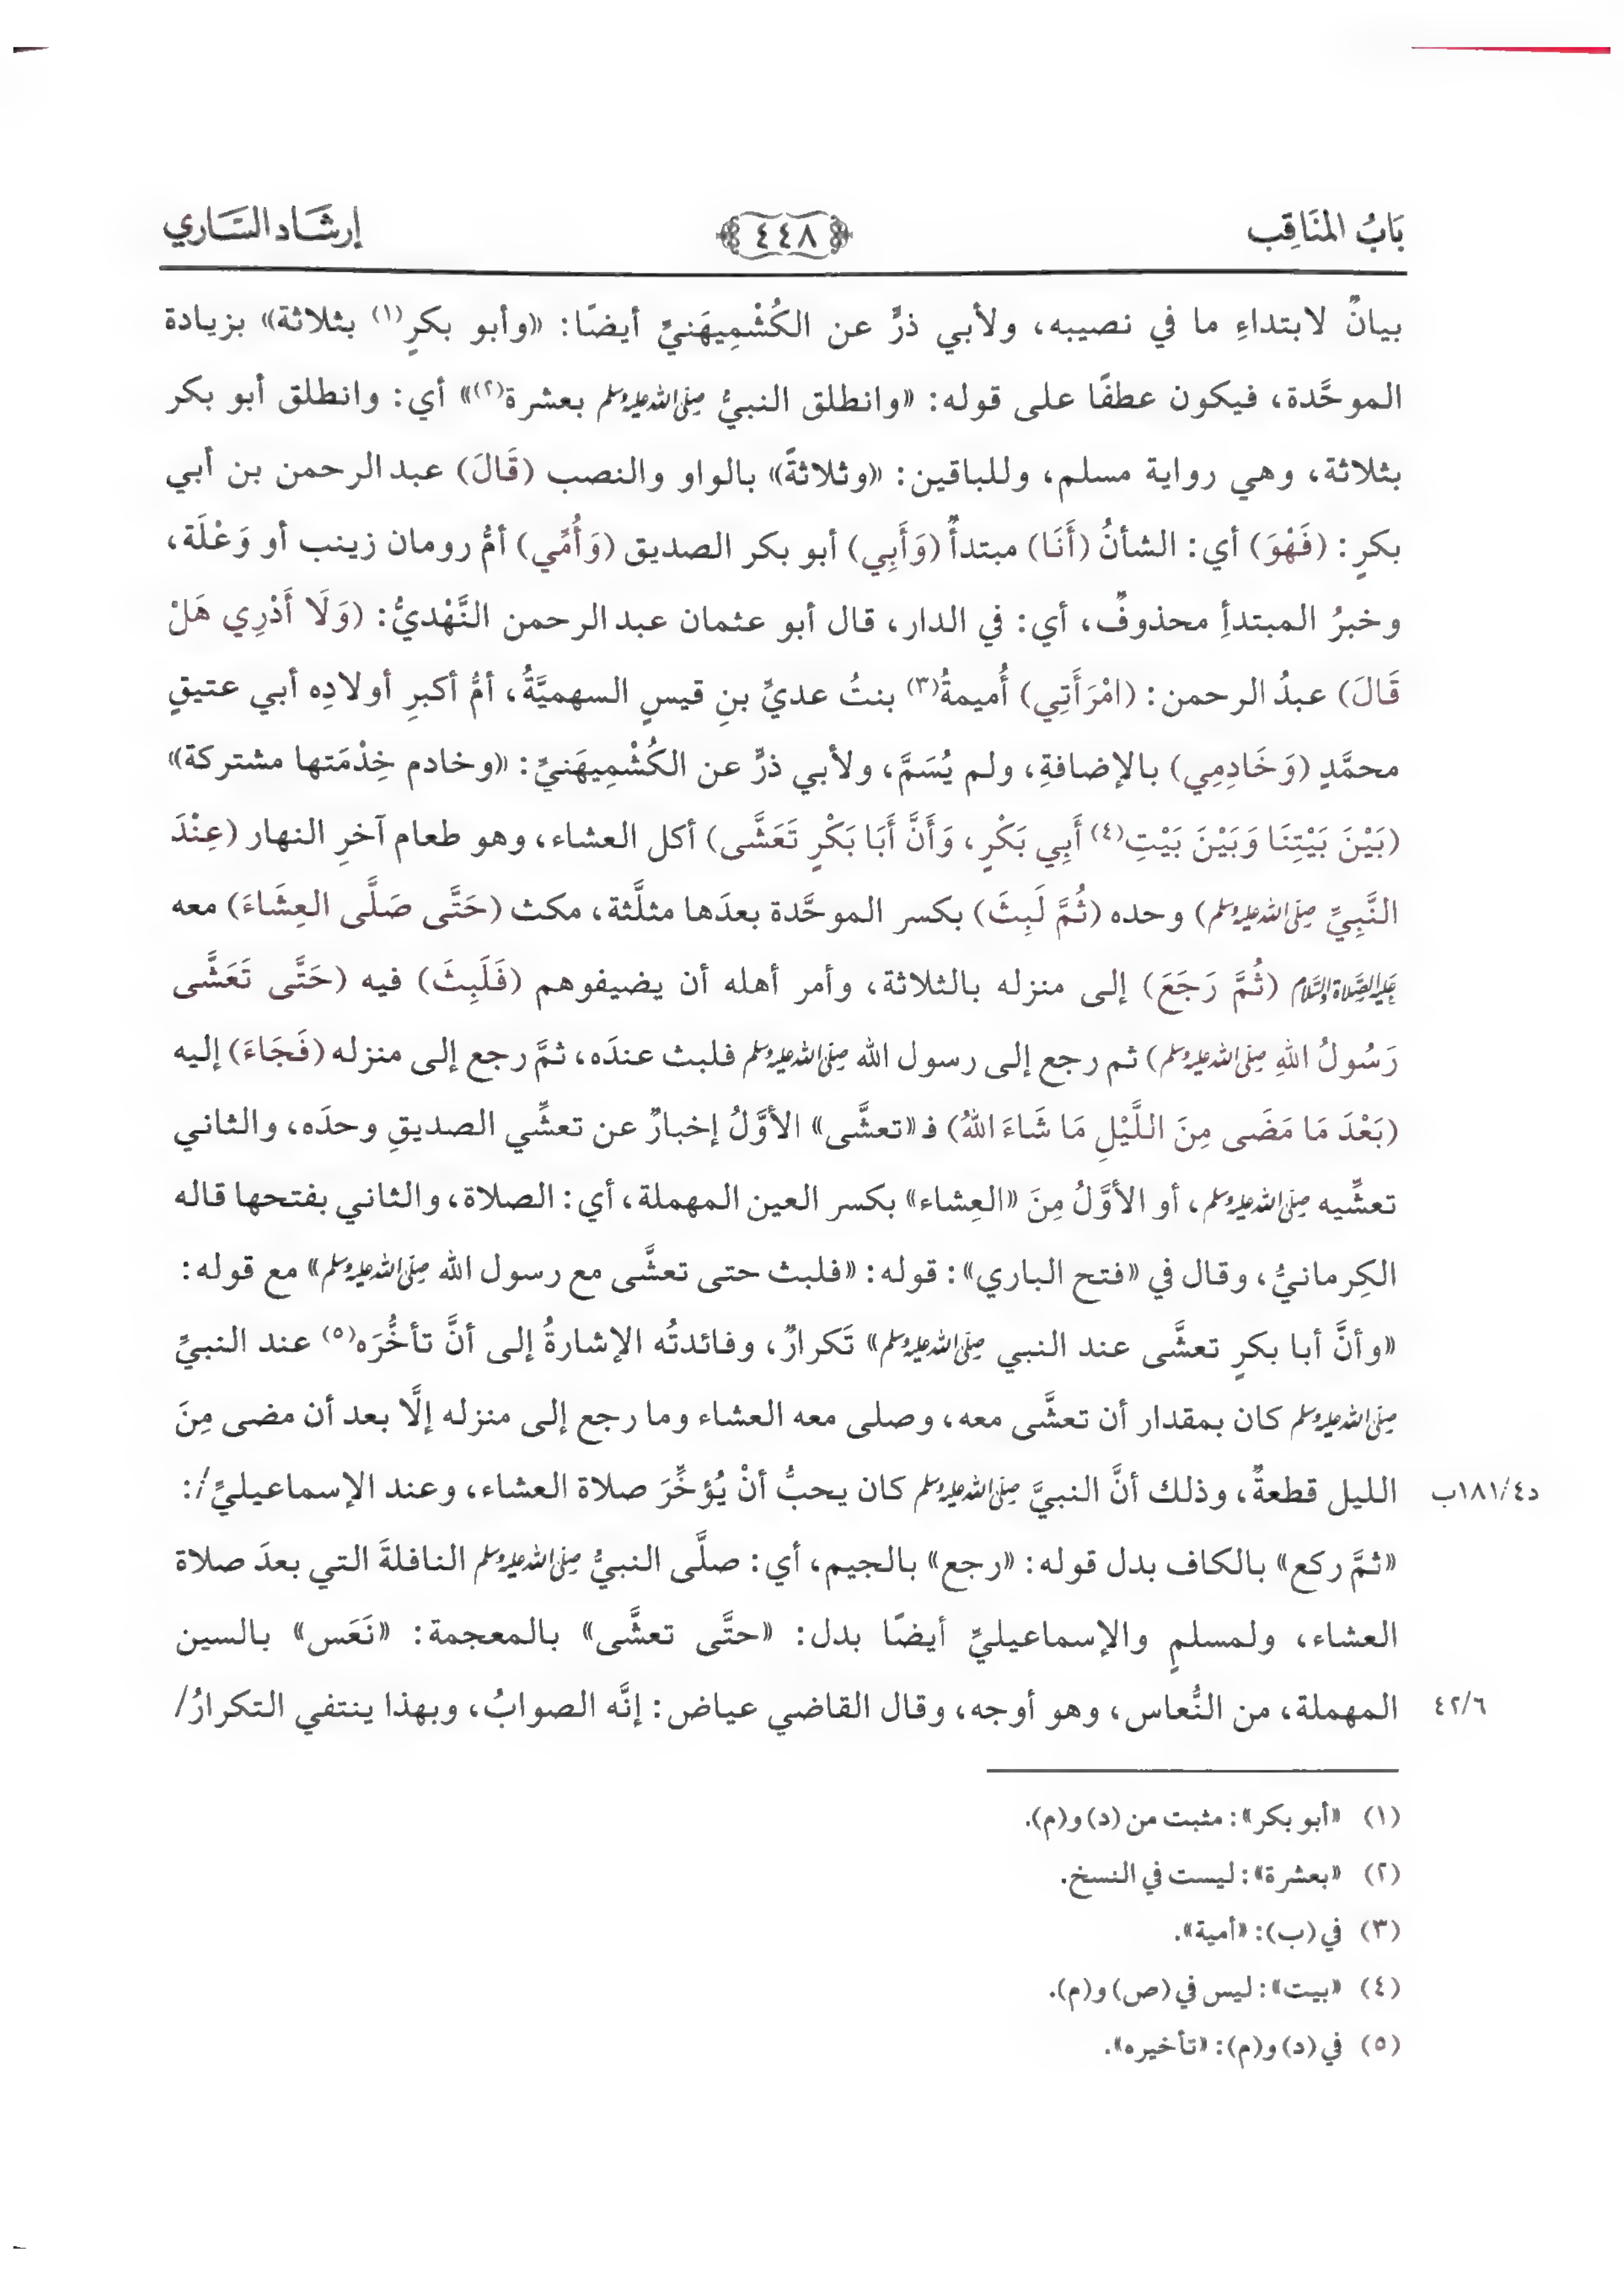 بَابُ المَنَاقِب
٤٤٨
إرشَاد السَّاري
بيانٌ لابتداءِ ما في نصيبه، ولأبي ذرٍّ عن الكُشْمِيهَنيِّ أيضًا: «وأبو بكرٍ(١) بثلاثة» بزيادة
الموحَّدة، فيكون عطفًا على قوله: «وانطلق النبيُّ صلى الله عليه وسلم بعشرة(٢)» أي: وانطلق أبو بكر
بثلاثة، وهي رواية مسلم، وللباقين: «وثلاثةً» بالواو والنصب (قَالَ) عبد الرحمن بن أبي
بكرٍ: (فَهْوَ) أي: الشأنُ (أَنَا) مبتدأٌ (وَأَبِي) أبو بكر الصديق (وَأُمِّي) أمُّ رومان زينب أو وَعْلَة،
وخبرُ المبتدأِ محذوفٌ، أي: في الدار، قال أبو عثمان عبد الرحمن النَّهْديُّ: (وَلَا أَدْرِي هَلْ
قَالَ) عبدُ الرحمن: (امْرَأَتِي) أُميمةُ(٣) بنتُ عديِّ بنِ قيسٍ السهميَّةُ، أمُّ أكبرِ أولادِه أبي عتيقٍ
محمَّدٍ (وَخَادِمِي) بالإضافةِ، ولم يُسَمَّ، ولأبي ذرٍّ عن الكُشْمِيهَنيِّ: «وخادم خِدْمَتها مشتركة»
(بَيْنَ بَيْتِنَا وَبَيْنَ بَيْتِ(٤) أَبِي بَكْرٍ، وَأَنَّ أَبَا بَكْرٍ تَعَشَّى) أكل العشاء، وهو طعام آخرِ النهار (عِنْدَ
النَّبِيِّ صلى الله عليه وسلم) وحده (ثُمَّ لَبِثَ) بكسر الموحَّدة بعدَها مثلَّثة، مكث (حَتَّى صَلَّى العِشَاءَ) معه
عليه الصلاة والسلام (ثُمَّ رَجَعَ) إلى منزله بالثلاثة، وأمر أهله أن يضيفوهم (فَلَبِثَ) فيه (حَتَّى تَعَشَّى
رَسُولُ اللهِ صلى الله عليه وسلم) ثم رجع إلى رسول الله صلى الله عليه وسلم فلبث عندَه، ثمَّ رجع إلى منزله (فَجَاءَ) إليه
(بَعْدَ مَا مَضَى مِنَ اللَّيْلِ مَا شَاءَ اللهُ) فـ«تعشَّى» الأوَّلُ إخبارٌ عن تعشِّي الصديقِ وحدَه، والثاني
تعشِّيه صلى الله عليه وسلم، أو الأوَّلُ مِنَ «العِشاء» بكسر العين المهملة، أي: الصلاة، والثاني بفتحها قاله
الكِرمانيُّ، وقال في «فتح الباري»: قوله: «فلبث حتى تعشَّى مع رسول الله صلى الله عليه وسلم» مع قوله:
«وأنَّ أبا بكرٍ تعشَّى عند النبي صلى الله عليه وسلم» تَكرارٌ، وفائدتُه الإشارةُ إلى أنَّ تأخُّرَه(٥) عند النبيِّ
صلى الله عليه وسلم كان بمقدار أن تعشَّى معه، وصلى معه العشاء وما رجع إلى منزله إلَّا بعد أن مضى مِنَ
الليل قطعةٌ، وذلك أنَّ النبيَّ صلى الله عليه وسلم كان يحبُّ أنْ يُؤخِّرَ صلاة العشاء، وعند الإسماعيليِّ/:
د٤/١٨١ب
«ثمَّ ركع» بالكاف بدل قوله: «رجع» بالجيم، أي: صلَّى النبيُّ صلى الله عليه وسلم النافلةَ التي بعدَ صلاة
العشاء، ولمسلمٍ والإسماعيليِّ أيضًا بدل: «حتَّى تعشَّى» بالمعجمة: «نَعَس» بالسين
المهملة، من النُّعاس، وهو أوجه، وقال القاضي عياض: إنَّه الصوابُ، وبهذا ينتفي التكرارُ/
٤٢/٦
(١) «أبو بكر»: مثبت من (د) و(م).
(٢) «بعشرة»: ليست في النسخ.
(٣) في (ب): «أمية».
(٤) «بيت»: ليس في (ص) و(م).
(٥) في (د) و(م): «تأخيره».